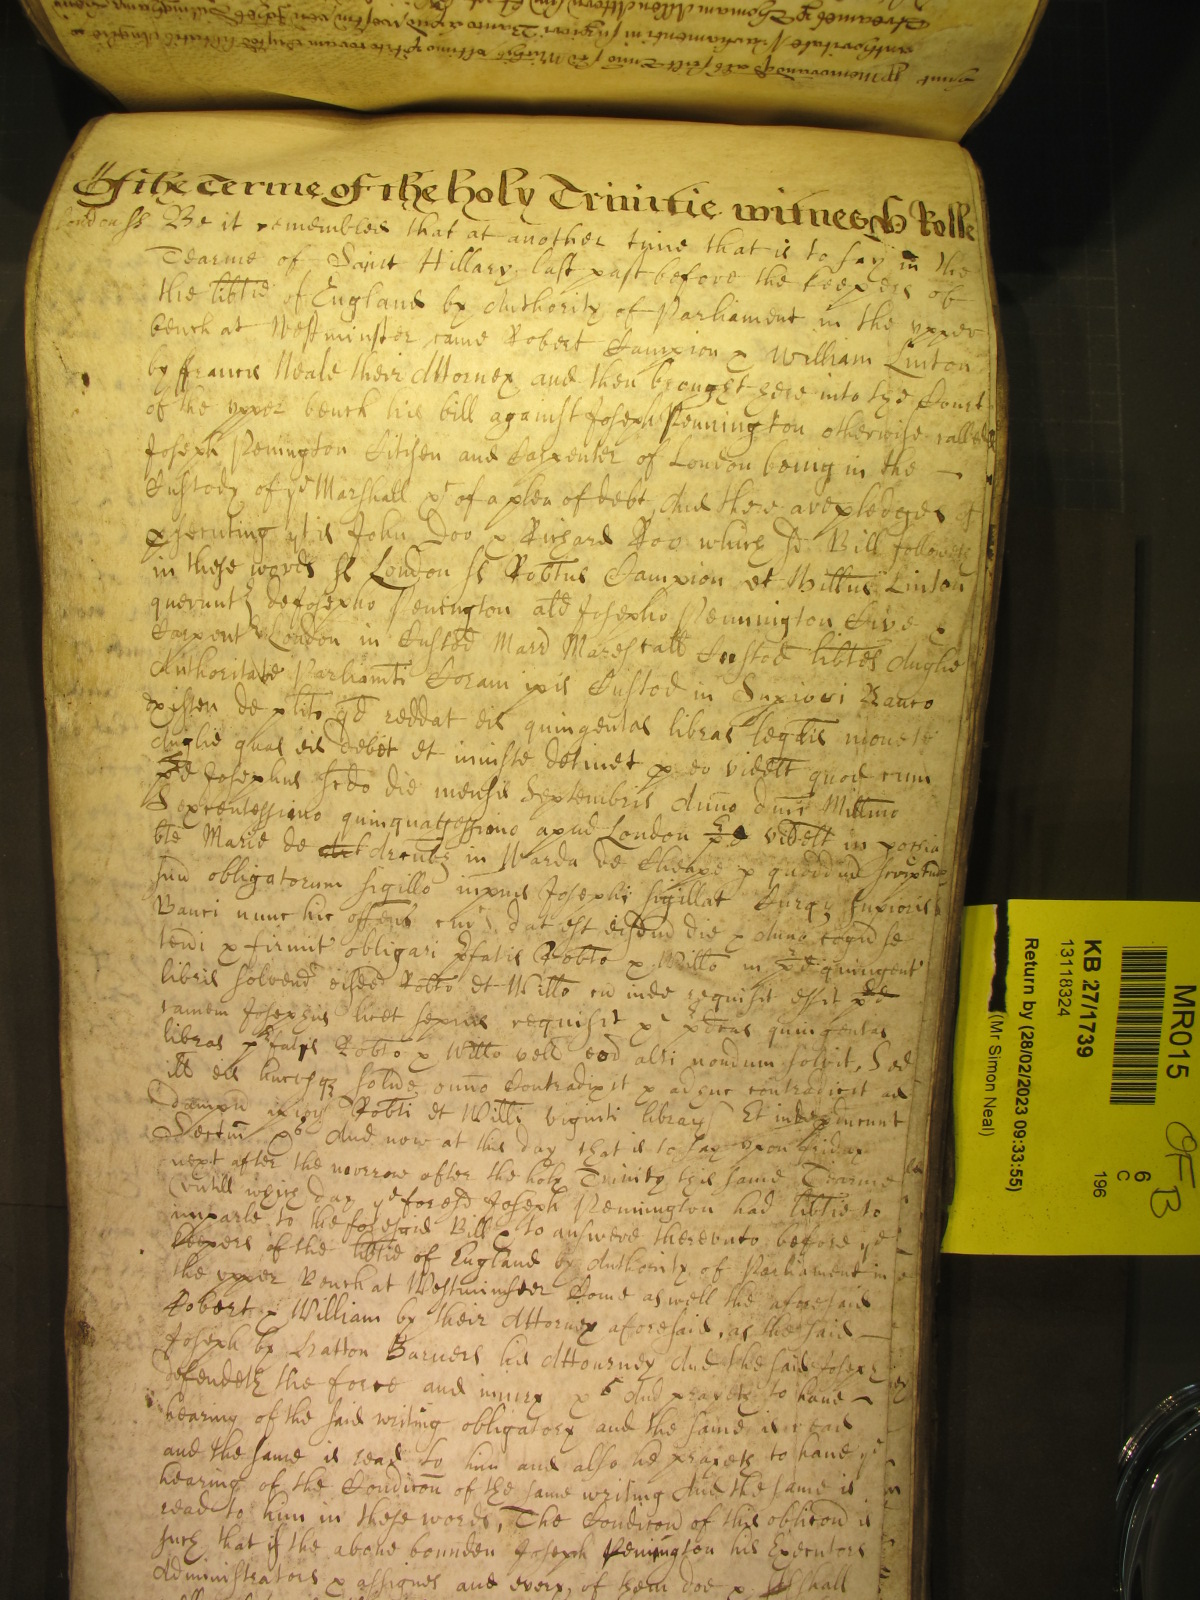 Of the Terme of the Holy Trinitie witnes Rolle
London ss Be it remembred that at another time that is to say in the
Tearme of Saint Hillary last past before the keepers of
the libtie of England by Authority of Parliament in the upper
bench at Westminster came Robert Campion & William Linton
by ffrancis Neale their Attorney and then brought here into the Court
of the upper bench his bill against Joseph Pennington otherwise called
Joseph Penington Citizen and Carpenter of London being in the
Custody of ye Marshall &c of a plea of debt And there are pledges of
prsecuting yt is John Doo & Richard Roo which sd Bill followeth
in these words ss London ss Robtus Campion et Willus Linton
querunt de Josepho Penington als Josepho Pennington Cive &
Carpent London in Custod Marr Marescall Custod libtis Anglie
Authoritate Parliamti Coram ipis Custod in Supiori Banco
existen de plito qd reddat eis quingentas libras legalis monete
Anglie quas eis debet et iniuste detinet p eo videlt quod cum
pd Josephus scdo die mensis Septembris Anno dni Millmo
Sexcentessimo quinquagessimo apud London pd videlt in pochia
bte Marie de Arcubz in Warda de Cheape p quoddam scriptu
suu obligatorium sigillo ipius Josephi sigillat Curq Supioris
Banci nunc hic ostens cui dat est eisdem die & Anno cogn se
teneri & firmit obligari pfatis Robto & Willo in pd quingent
libris solvend eisd Robto et Willo cu inde requisit esset pd
tamen Josephus licet sepius requisit &c pdcas quingentas
libras pfatis Robto & Willo vell eor alti nondum solvit, Sed
ill eis hucusqz solve omno Contradixit & adhuc contradicit ad
dampn ipoz Robti et Willi viginti libraz Et inde pducunt
Sectm &c And now at this day that is to say upon friday
next after the morrow after the holy Trinity this same Tearme
(untill which day ye foresd Joseph Pennington had libtie to
imparle to the foresaid Bill & to answere thereunto before ye
keepers of the libtie of England by Authority of Parliament in
the upper Bench at Westminster Come aswell the aforesaid
Robert & William by their Attorney aforesaid, as the said
Joseph by Bratton Barners his Attourney And the said Joseph
defendeth the force and iniury &c And prayeth to have
hearing of the said writing obligatory and the same is read
and the same is read to him and also he prayeth to have ye
hearing of the Condicon of the same writing And the same is
read to him in these words, The Condicon of this obligcon is
such that if the above bounden Joseph Penington his Executors
Administrators & assignes and every of them doe & shall
MR015
KB 27/1739
13118324
Return by (28/02/2023 09:33:55)
(Mr Simon Neal)
6
C
196
OFB